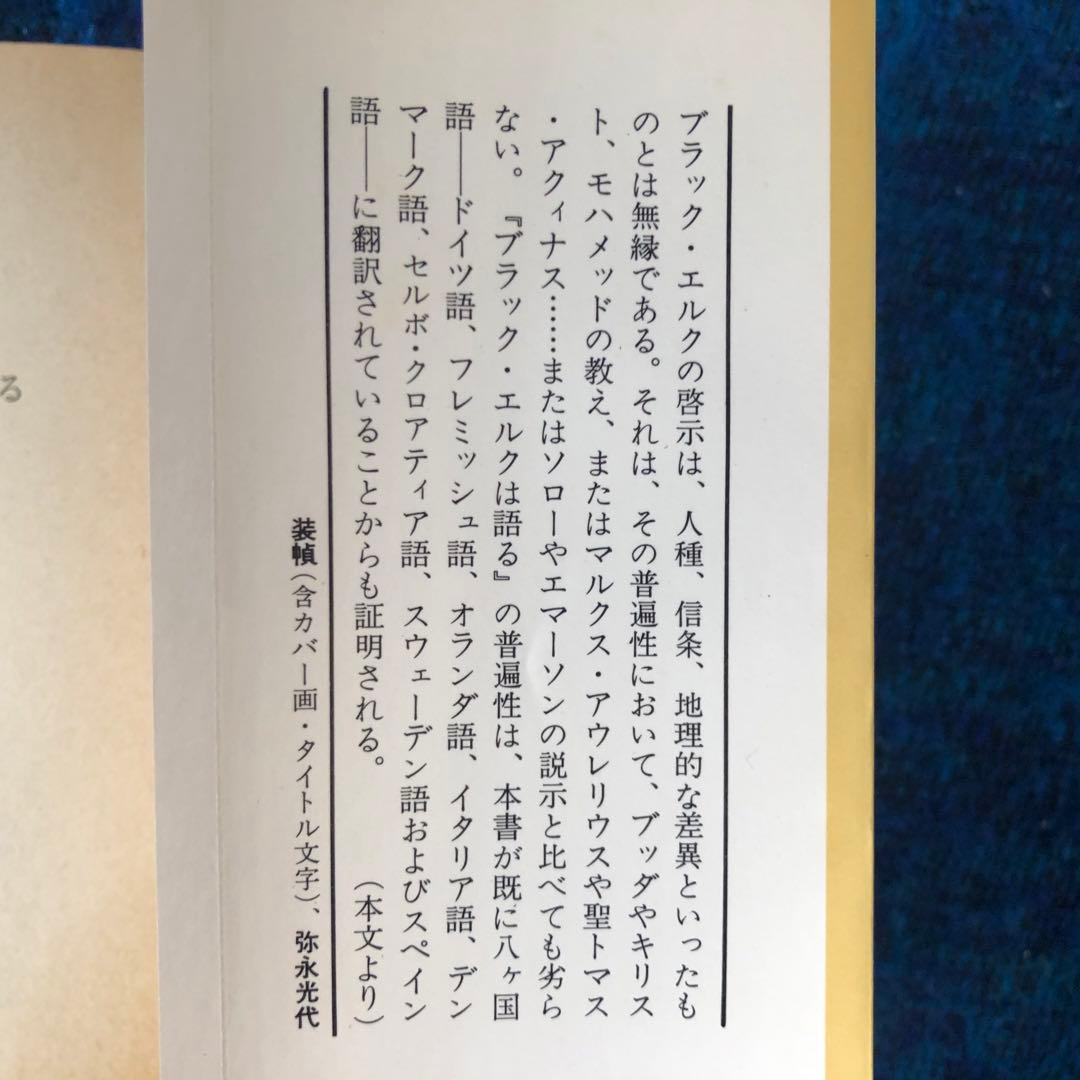 ブラック・エルクの啓示は、人種、信条、地理的な差異といったも
のとは無縁である。それは、その普遍性において、ブッダやキリス
ト、モハメッドの教え、またはマルクス・アウレリウスや聖トマス
・アクィナス……またはソローやエマーソンの説示と比べても劣ら
ない。『ブラック・エルクは語る』の普遍性は、本書が既に八ヶ国
語――ドイツ語、フレミッシュ語、オランダ語、イタリア語、デン
マーク語、セルボ・クロアティア語、スウェーデン語およびスペイン
語――に翻訳されていることからも証明される。（本文より）
装幀（含カバー画・タイトル文字）、弥永光代
る